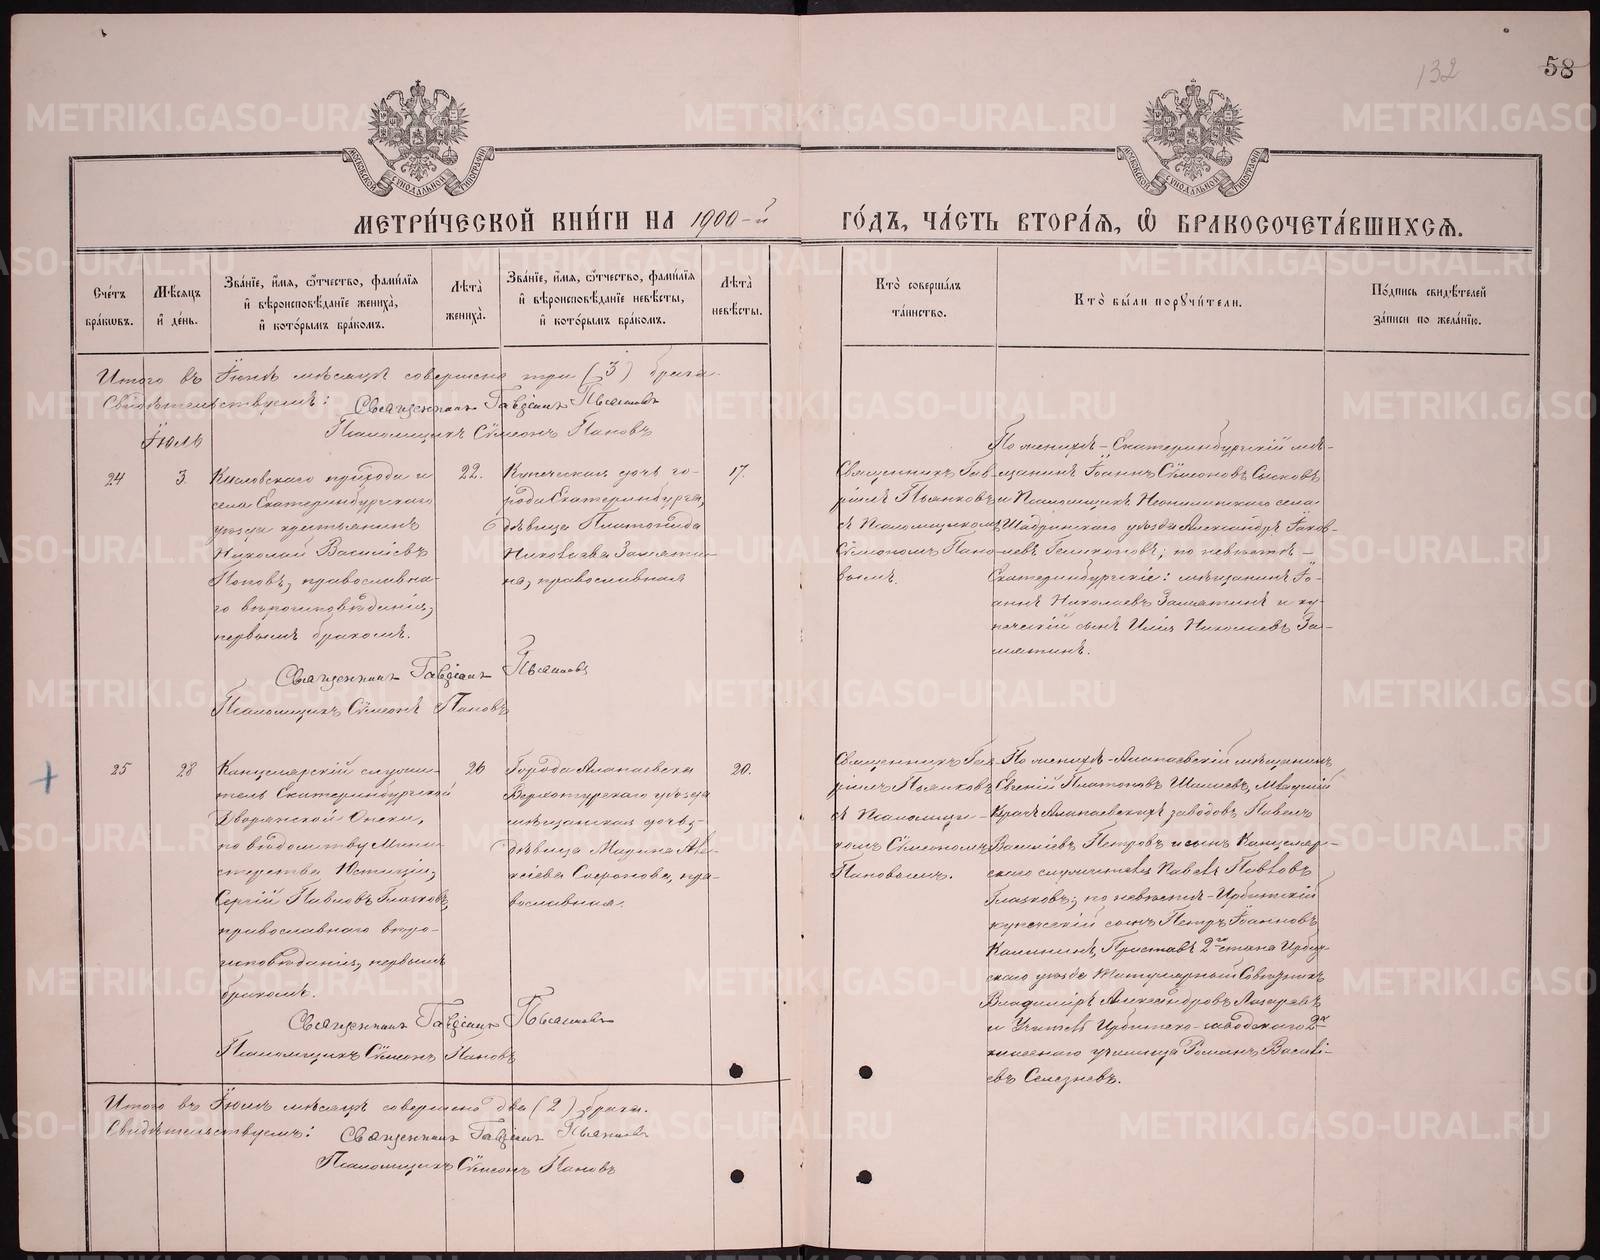 132
58
МОСКОВСКОЙ СѴНОДАЛЬНОЙ ТИПОГРАФІИ
МОСКОВСКОЙ СѴНОДАЛЬНОЙ ТИПОГРАФІИ
МЕТРИ́ЧЕСКОЙ КНИ́ГИ НА 1900-й ГО́ДЪ, ЧА́СТЬ ВТОРА́Я, Ѡ БРАКОСОЧЕТА́ВШИХСЯ.
Сче́тъ бра́кѡвъ.
Мѣ́сяцъ и҆ де́нь.
Зва́нїе, и҆́мя, ѻ҆́тчество, фами́лїя и҆ вѣроисповѣ́данїе жениха̀, и҆ кото́рымъ бра́комъ.
Лѣ́та̀ жениха̀.
Зва́нїе, и҆́мя, ѻ҆́тчество, фами́лїя и҆ вѣроисповѣ́данїе невѣ́сты, и҆ кото́рымъ бра́комъ.
Лѣ́та̀ невѣ́сты.
Кто̀ соверша́лъ та́инство.
Кто̀ бы́ли порꙋчи́тели.
По́дпись свидѣ́телей за́писи по жела́нїю.
Итого въ Іюнѣ мѣсяцѣ совершено три (3) брака.
Свидѣтельствуемъ: Священникъ Гавріилъ Пьянковъ
Псаломщикъ Сѵмеонъ Пановъ
Іюль
24
3.
Кисловскаго прихода и
села Екатеринбургскаго
уѣзда крестьянинъ
Николай Василіевъ
Поповъ, православна-
го вѣроисповѣданія,
первымъ бракомъ.
22.
Купеческая дочь го-
рода Екатеринбурга,
дѣвица Платонида
Николаева Замяти-
на, православная
17.
Священникъ Гав-
ріилъ Пьянковъ
съ Псаломщикомъ
Сѵмеономъ Пано-
вымъ.
По женихѣ - Екатеринбургскій мѣ-
щанинъ Іоаннъ Сѵмеоновъ Сысковъ
и Псаломщикъ села
Шадринскаго уѣзда Александръ Іаков-
левъ; по невѣстѣ -
Екатеринбургскіе: мѣщанинъ Іо-
аннъ Николаевъ Замятинъ и ку-
печескій сынъ Илія Николаевъ За-
мятинъ.
Священникъ Гавріилъ Пьянковъ
Псаломщикъ Сѵмеонъ Пановъ
25
28
Канцелярскій служи-
тель Екатеринбургской
Дворянской Опеки,
по вѣдомству Мини-
стерства Юстиціи,
Сергій Павловъ Глазковъ,
православнаго вѣро-
исповѣданія, первымъ
бракомъ.
26
Города Алапаевска
Верхотурскаго уѣзда
мѣщанская дочь,
дѣвица Марина Але-
ксіева Сафронова, пра-
вославная.
20.
Священникъ Гав-
ріилъ Пьянковъ
съ Псаломщи-
комъ Сѵмеономъ
Пановымъ.
По женихѣ - Алапаевскій мѣщанинъ
Евгеній Платоновъ Шаньевъ, Младшій
Врачъ Алапаевскихъ заводовъ Павелъ
Василіевъ Петровъ и сынъ Канцеляр-
скаго служителя Павелъ Павловъ
Глазковъ; по невѣстѣ - Ирбитскій
купеческій сынъ Петръ Іоанновъ
Калининъ, Приставъ 2го стана Ирбит-
скаго уѣзда Титулярный Совѣтникъ
Владиміръ Александровъ Лазаревъ
и Учитель Ирбитско-заводскаго 2хъ
класснаго училища Романъ Василі-
евъ Селезневъ.
Священникъ Гавріилъ Пьянковъ
Псаломщикъ Сѵмеонъ Пановъ
Итого въ Іюлѣ мѣсяцѣ совершено два (2) брака.
Свидѣтельствуемъ: Священникъ Гавріилъ Пьянковъ
Псаломщикъ Сѵмеонъ Пановъ
METRIKI.GASO-URAL.RU